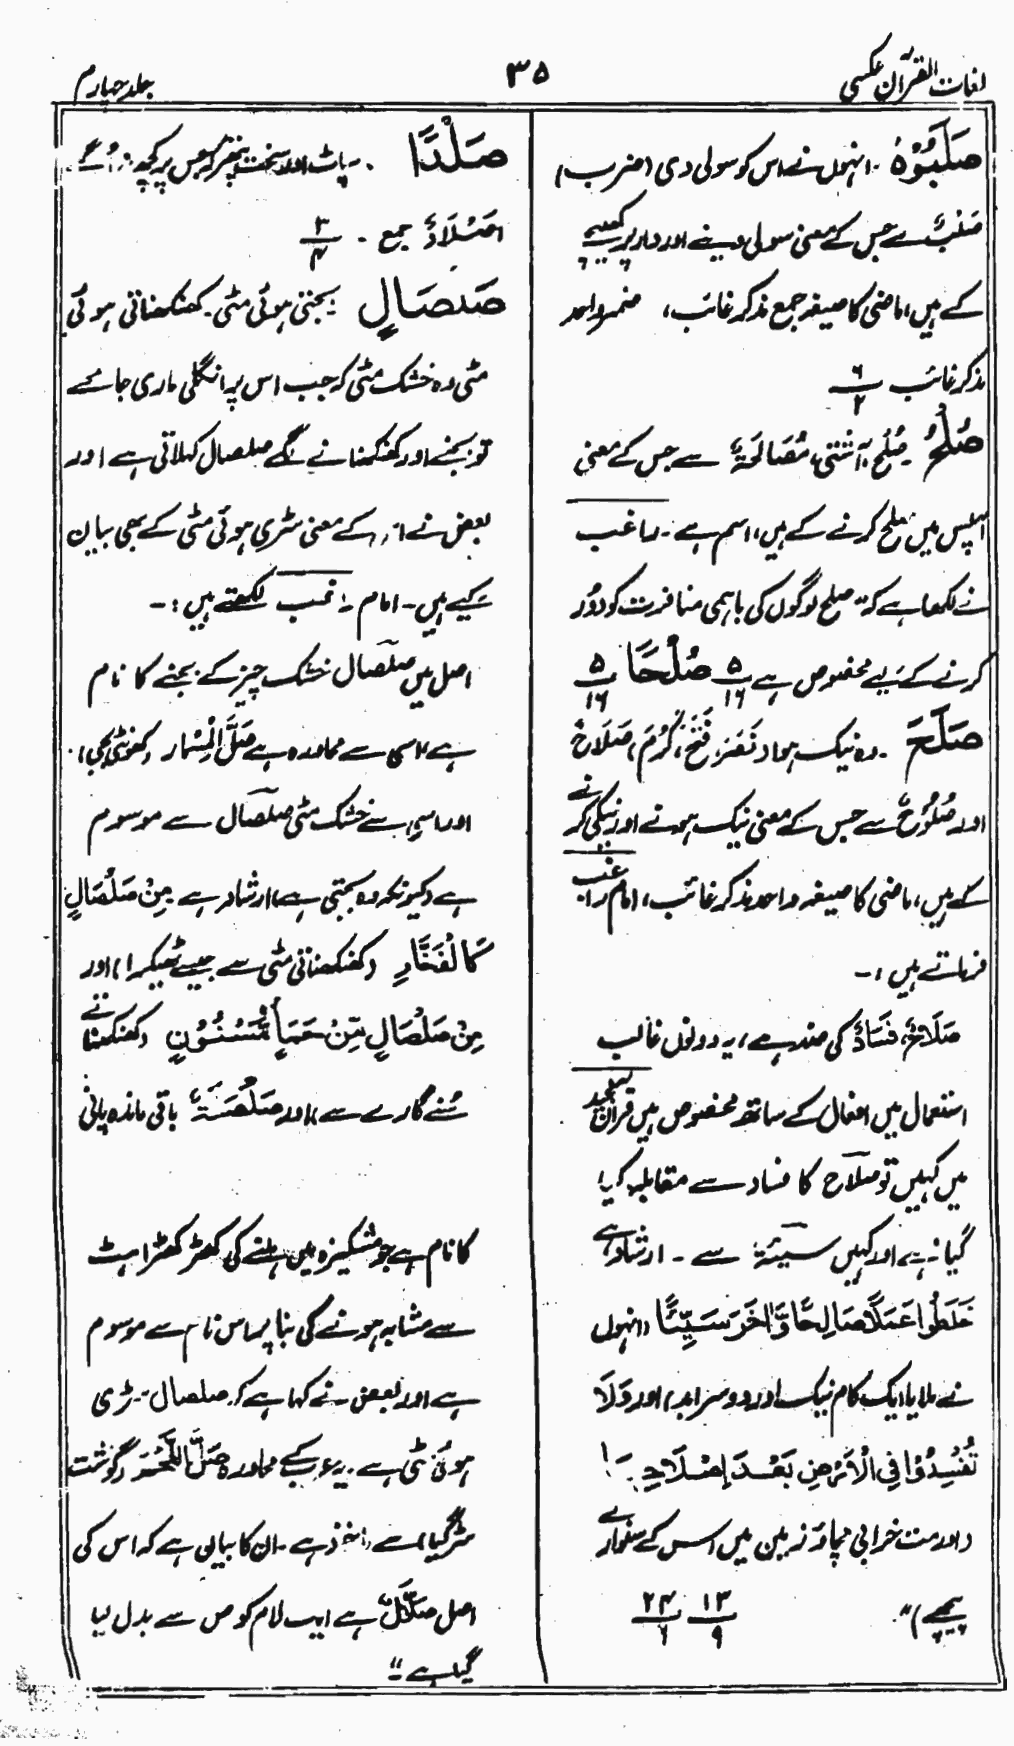 لغات القرآن عکسی
۳۵
جلد چہارم
صَلَبُوْهُ ۔ انہوں نے اس کو سولی دی (ضرب)
صَلْبٌ سے جس کے معنی سولی دینے اور دار پر کھینچنے
کے ہیں، ماضی کا صیغہ جمع مذکر غائب، ضمیر واحد
مذکر غائب ۶/۲
صُلْحٌ صُلح، آشتی، مُصَالَحَةٌ سے جس کے معنی
آپس میں صلح کرنے کے ہیں، اسم ہے ۔ راغب
نے لکھا ہے کہ ”صلح لوگوں کی باہمی منافرت کو دُور
کرنے کے لیے مخصوص ہے ۵/۱۶ صُلْحًا ۵/۱۶
صَلَحَ ۔ وہ نیک ہوا۔ نَصَرَ، فَتَحَ، کَرُمَ، صَلَاحٌ
اور صُلُوْحٌ سے جس کے معنی نیک ہونے اور نیکی کرنے
کے ہیں، ماضی کا صیغہ واحد مذکر غائب، امام راغب
فرماتے ہیں :۔
صَلَاحٌ، فَسَادٌ کی ضد ہے، یہ دونوں غالب
استعمال میں افعال کے ساتھ مخصوص ہیں قرآن مجید
میں کہیں تو صلاح کا فساد سے مقابلہ کیا
گیا ہے اور کہیں سیئة سے ۔ ارشاد ہے
خَلَطُوْا عَمَلًا صَالِحًا وَّاٰخَرَ سَيِّئًا (انہوں
نے ملایا ایک کام نیک اور دوسرا بد) اور وَلَا
تُفْسِدُوْا فِي الْاَرْضِ بَعْدَ اِصْلَاحِهَا
(اور مت خرابی مچاؤ زمین میں اس کے سنوارے
پیچھے)“ ۱۳/۹ ۲۴/۶
صَلْدًا ۔ سپاٹ اور سخت پتھر کہ جس پر کچھ نہ اُگے۔
اَصْلَادٌ جمع ۔ ۳/۴
صَلْصَالٍ بجتی ہوئی مٹی۔ کھنکھناتی ہوئی
مٹی وہ خشک مٹی کہ جب اس پر انگلی ماری جائے
تو بجنے اور کھنکھنانے لگے صلصال کہلاتی ہے اور
بعض نے اس کے معنی سڑی ہوئی مٹی کے بھی بیان
کیے ہیں۔ امام راغب لکھتے ہیں :۔
اصل میں صلصال خشک چیز کے بجنے کا نام
ہے اسی سے محاورہ ہے صَلَّ الْمِسْمَار (کھونٹی بجی)
اور اسی سے خشک مٹی صلصال سے موسوم
ہے (کیونکہ وہ بجتی ہے) ارشاد ہے مِنْ صَلْصَالٍ
كَالْفَخَّارِ (کھنکھناتی مٹی سے جیسے ٹھیکرا) اور
مِنْ صَلْصَالٍ مِّنْ حَمَإٍ مَّسْنُوْنٍ (کھنکھناتے
سُنے گارے سے) اور صَلْصَلَةٌ باقی ماندہ پانی
کا نام ہے جو مشکیزہ میں ہلنے کی کھڑ کھڑاہٹ
سے مشابہ ہونے کی بنا پر اس نام سے موسوم
ہے اور بعض نے کہا ہے کہ صلصال سڑی
ہوئی مٹی ہے۔ یہ عرب کے محاورہ صَلَّ اللَّحْمُ (گوشت
سڑ گیا) سے ماخوذ ہے ۔ ان کا بیان ہے کہ اس کی
اصل صَلَّالٌ ہے ایک لام کو ص سے بدل لیا
گیا ہے“